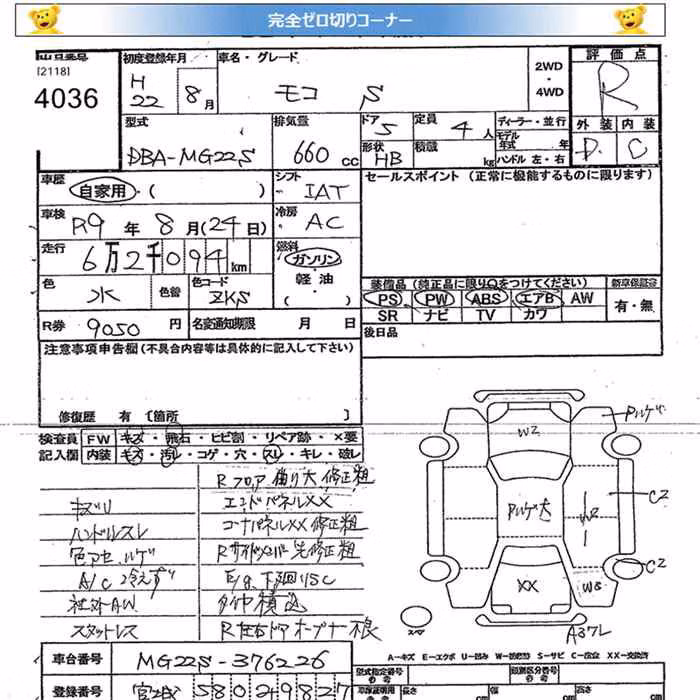 完全ゼロ切りコーナー
出品番号 初度登録年月 車名・グレード 2WD・4WD 評価点
[2118]
4036
H22 8月 モコ S R
型式 排気量 ドア 定員 ディーラー・並行 外装 内装
DBA-MG22S 660cc 5 4人 モデル年式 年 D C
形状 HB 積載 kg ハンドル 左・右
車歴 自家用・( ) シフト IAT セールスポイント (正常に機能するものに限ります)
車検 R9年 8月(24日) 冷房 AC
走行 6万2千094km 燃料 ガソリン 軽油 ( )
色 水 色替 色コード ZKS
装備品 (純正品に限り○をつけてください) 新車保証書
PS PW ABS エアB AW 有・無
SR ナビ TV カワ
R券 9050円 名変通知期限 月 日
後日品
注意事項申告欄(不具合内容等は具体的に記入して下さい)
修復歴 有〔箇所 〕
検査員記入欄 FW キズ・飛石・ヒビ割・リペア跡・×要
内装 キズ・汚レ・コゲ・穴・スレ・キレ・破レ
Rフロア 曲り大 修正粗
キズU エンドパネルXX
ハンドルスレ コーナパネルXX 修正粗
色アセ、ハゲ Rサイドメンバー先修正粗
A/C 冷えず E/g 下廻りSC
社外AW タイヤ積込
スタットレス R左右ドアオープナー不良
W2
Pハゲ
Pハゲ大
W2
C2
C2
XX
W3
A3フレ
A-キズ E-エクボ U-凹み S-サビ C-腐食 XX-交換済
車台番号 MG22S-376226
型式指定番号 類別区分番号
登録番号 宮城 580 ね 9827
長さ cm 幅 cm 高さ cm